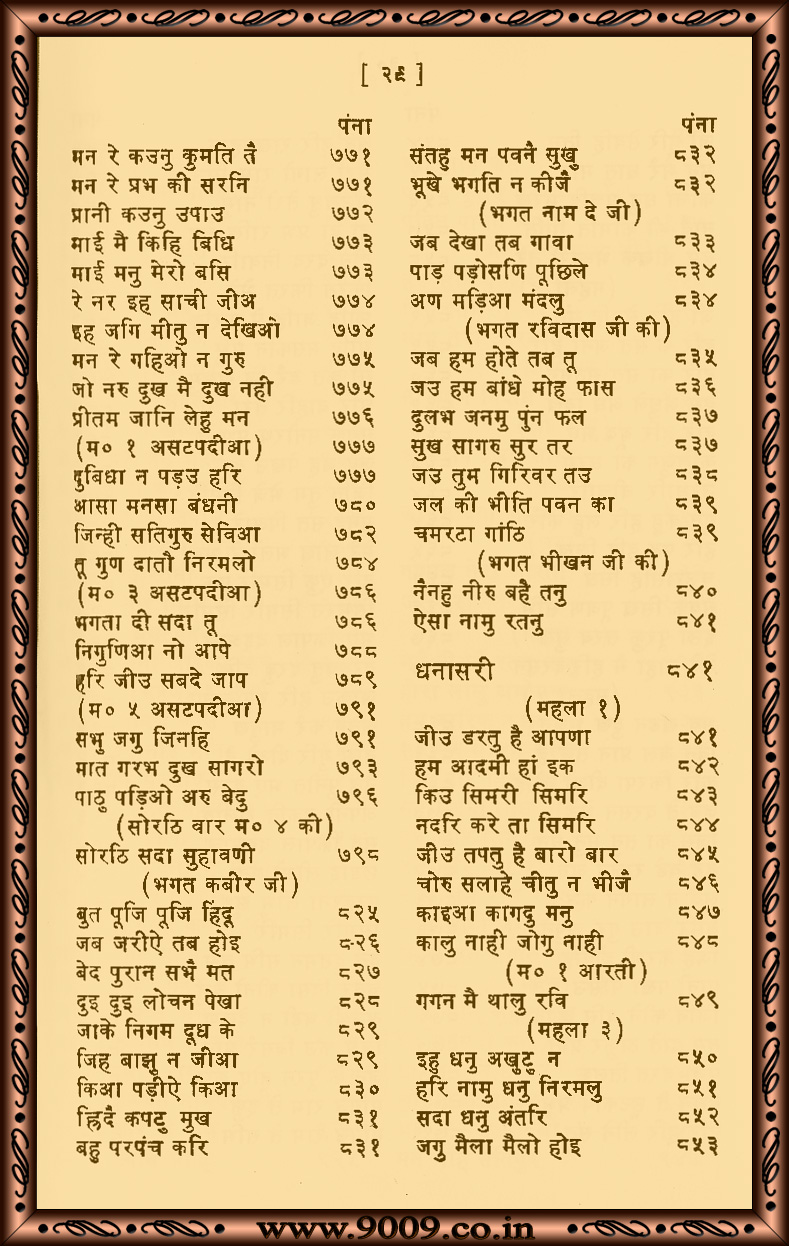 [ २९ ]
पंना
मन रे कउनु कुमति तै ७७१
मन रे प्रभ की सरनि ७७१
प्रानी कउनु उपाउ ७७२
माई मै किहि बिधि ७७३
माई मनु मेरो बसि ७७३
रे नर इह साची जीअ ७७४
इह जगि मीतु न देखिओ ७७४
मन रे गहिओ न गुरु ७७५
जो नरु दुख मै दुख नही ७७५
प्रीतम जानि लेहु मन ७७६
(म० १ असटपदीआ) ७७७
दुबिधा न पड़उ हरि ७७७
आसा मनसा बंधनी ७८०
जिन्ही सतिगुरु सेविआ ७८२
तू गुण दातौ निरमलो ७८४
(म० ३ असटपदीआ) ७८६
भगता दी सदा तू ७८६
निगुणिआ नो आपे ७८८
हरि जीउ सबदे जाप ७८९
(म० ५ असटपदीआ) ७९१
सभु जगु जिनहि ७९१
मात गरभ दुख सागरो ७९३
पाठु पड़िओ अरु बेदु ७९६
(सोरठि वार म० ४ की)
सोरठि सदा सुहावणी ७९८
(भगत कबीर जी)
बुत पूजि पूजि हिंदू ८२५
जब जरीऐ तब होइ ८-२६
बेद पुरान सभै मत ८२७
दुइ दुइ लोचन पेखा ८२८
जाके निगम दूध के ८२९
जिह बाझु न जीआ ८२९
किआ पड़ीऐ किआ ८३०
ह्रिदै कपटु मुख ८३१
बहु परपंच करि ८३१
पंना
संतहु मन पवनै सुखु ८३२
भूखे भगति न कीजै ८३२
(भगत नाम दे जी)
जब देखा तब गावा ८३३
पाड़ पड़ोसणि पूछिले ८३४
अण मड़िआ मंदलु ८३४
(भगत रविदास जी की)
जब हम होते तब तू ८३५
जउ हम बांधे मोह फास ८३६
दुलभ जनमु पुंन फल ८३७
सुख सागरु सुर तर ८३७
जउ तुम गिरिवर तउ ८३८
जल की भीति पवन का ८३९
चमरटा गांठि ८३९
(भगत भीखन जी की)
नैनहु नीरु बहै तनु ८४०
ऐसा नामु रतनु ८४१
धनासरी ८४१
(महला १)
जीउ डरतु है आपणा ८४१
हम आदमी हां इक ८४२
किउ सिमरी सिमरि ८४३
नदरि करे ता सिमरि ८४४
जीउ तपतु है बारो बार ८४५
चोरु सलाहे चीतु न भीजै ८४६
काइआ कागदु मनु ८४७
कालु नाही जोगु नाही ८४८
(म० १ आरती)
गगन मै थालु रवि ८४९
(महला ३)
इहु धनु अखुटु न ८५०
हरि नामु धनु निरमलु ८५१
सदा धनु अंतरि ८५२
जगु मैला मैलो होइ ८५३
www.9009.co.in